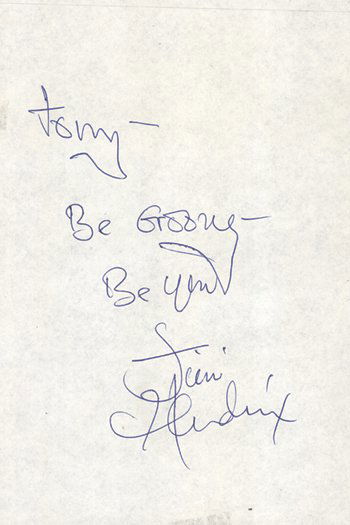 Tony -
Be Groovy -
Be you
Jimi
Hendrix